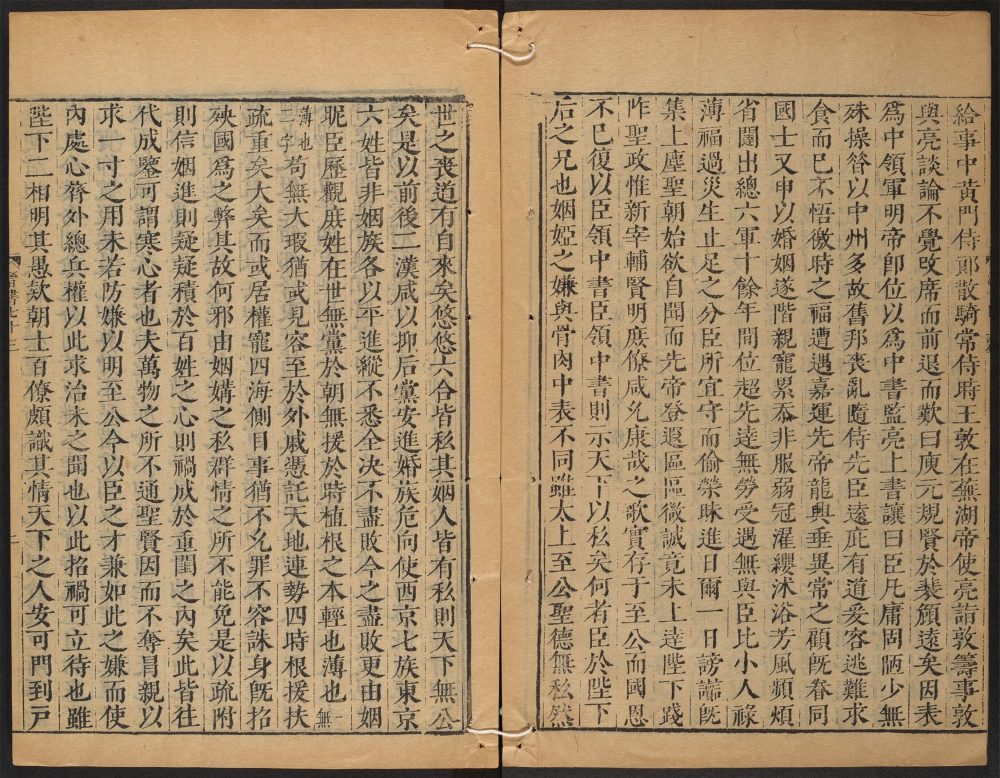 給事中黃門侍郎散騎常侍時王敦在蕪湖帝使亮詣敦籌事敦
與亮談論不覺改席而前退而歎曰庾元規賢於裴頠遠矣因表
爲中領軍明帝卽位以爲中書監亮上書讓曰臣凡庸固陋少無
殊操昝以中州多故舊邦喪亂隨侍先臣遠庇有道爰容逃難求
食而已不悟徼時之福遭遇嘉運先帝龍興垂異常之顧旣眷同
國士又申以婚姻遂階親寵累忝非服弱冠濯纓沭浴芳風頻煩
省闥出總六軍十餘年間位超先達無勞受遇無與臣比小人祿
薄福過災生止足之分臣所宜守而偷榮昧進日爾一日謗讟旣
集上塵聖朝始欲自聞而先帝登遐區區微誠竟未上達陛下踐
阼聖政惟新宰輔賢明庶僚咸允康哉之歌實存于至公而國恩
不已復以臣領中書臣領中書則示天下以私矣何者臣於陛下
后之兄也姻婭之嫌與骨肉中表不同雖太上至公聖德無私然
世之喪道有自來矣悠悠六合皆私其姻人皆有私則天下無公
矣是以前後二漢咸以抑后黨安進婚族危向使西京七族東京
六姓皆非姻族各以平進縱不悉全決不盡敗今之盡敗更由姻
昵臣歷觀庶姓在世無黨於朝無援於時植根之本輕也薄也一無
薄也二字苟無大瑕猶或見容至於外戚憑託天地連勢四時根援扶
疏重矣大矣而或居權寵四海側目事猶不允罪不容誅身旣招
殃國爲之弊其故何邪由姻媾之私群情之所不能免是以疏附
則信姻進則疑疑積於百姓之心則禍成於重閨之內矣此皆往
代成鑒可謂寒心者也夫萬物之所不通聖賢因而不奪冒親以
求一寸之用未若防嫌以明至公今以臣之才兼如此之嫌而使
內處心膂外總兵權以此求治未之聞也以此招禍可立待也雖
陛下二相明其愚欵朝士百僚頗識其情天下之人安可門到戸